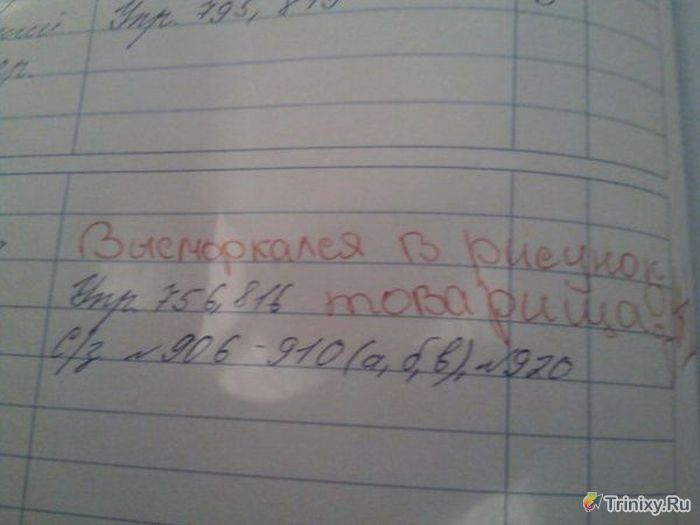 Упр. 795, 815
ер.
Высморкался в рисунок
Упр. 756, 816 товарища
с/з №906-910 (а, б, в), №920
Trinixy.Ru